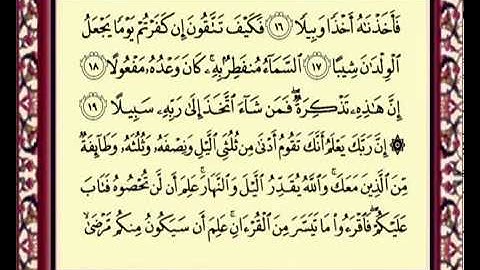 فَأَخَذْنَٰهُ أَخْذًا وَبِيلًا ١٦ فَكَيْفَ تَتَّقُونَ إِن كَفَرْتُمْ يَوْمًا يَجْعَلُ
ٱلْوِلْدَٰنَ شِيبًا ١٧ ٱلسَّمَآءُ مُنفَطِرٌۢ بِهِۦ ۚ كَانَ وَعْدُهُۥ مَفْعُولًا ١٨
إِنَّ هَٰذِهِۦ تَذْكِرَةٌ ۖ فَمَن شَآءَ ٱتَّخَذَ إِلَىٰ رَبِّهِۦ سَبِيلًا ١٩
۞ إِنَّ رَبَّكَ يَعْلَمُ أَنَّكَ تَقُومُ أَدْنَىٰ مِن ثُلُثَىِ ٱلَّيْلِ وَنِصْفَهُۥ وَثُلُثَهُۥ وَطَآئِفَةٌ
مِّنَ ٱلَّذِينَ مَعَكَ ۚ وَٱللَّهُ يُقَدِّرُ ٱلَّيْلَ وَٱلنَّهَارَ ۚ عَلِمَ أَن لَّن تُحْصُوهُ فَتَابَ
عَلَيْكُمْ ۖ فَٱقْرَءُوا۟ مَا تَيَسَّرَ مِنَ ٱلْقُرْءَانِ ۚ عَلِمَ أَن سَيَكُونُ مِنكُم مَّرْضَىٰ